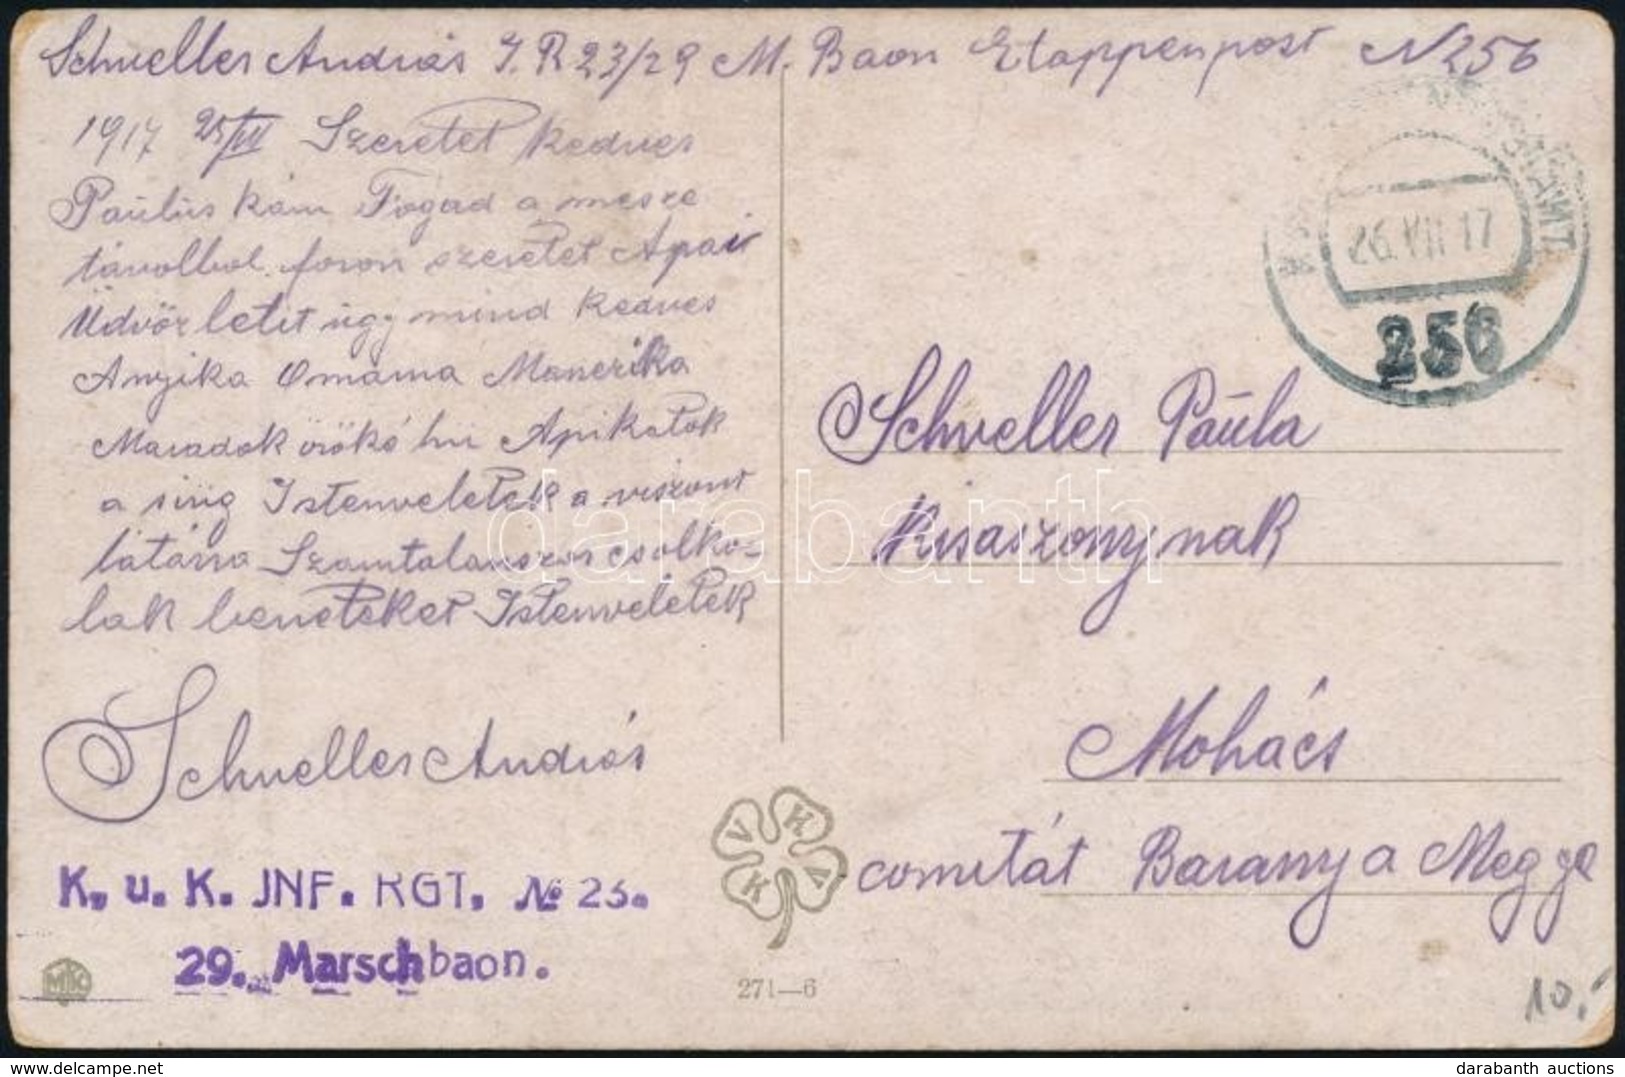 Schneller András I.R 23/29 M. Baon Etappenpost N 256
1917 25/VII Szeretet kedves
Paulus kám Fogad a mesze
távolbol foron szeretet Apai
Üdvözletit úgy mind kedves
Anyika Omama Manerika
Maradok örökö hű Apikatok
a sirig Istenveletek a viszont
látásra Szamtalanszor csolko-
lak beneteket Istenveletek
Schneller András
K. u. K. INF. RGT. № 23.
29. Marschbaon.
MK
271—6
V K V K
26. VII 17
256
Schneller Paúla
Kisaszonynak
Mohács
comitát Baranya Megye
10,-
darabanth
darabanth auctions